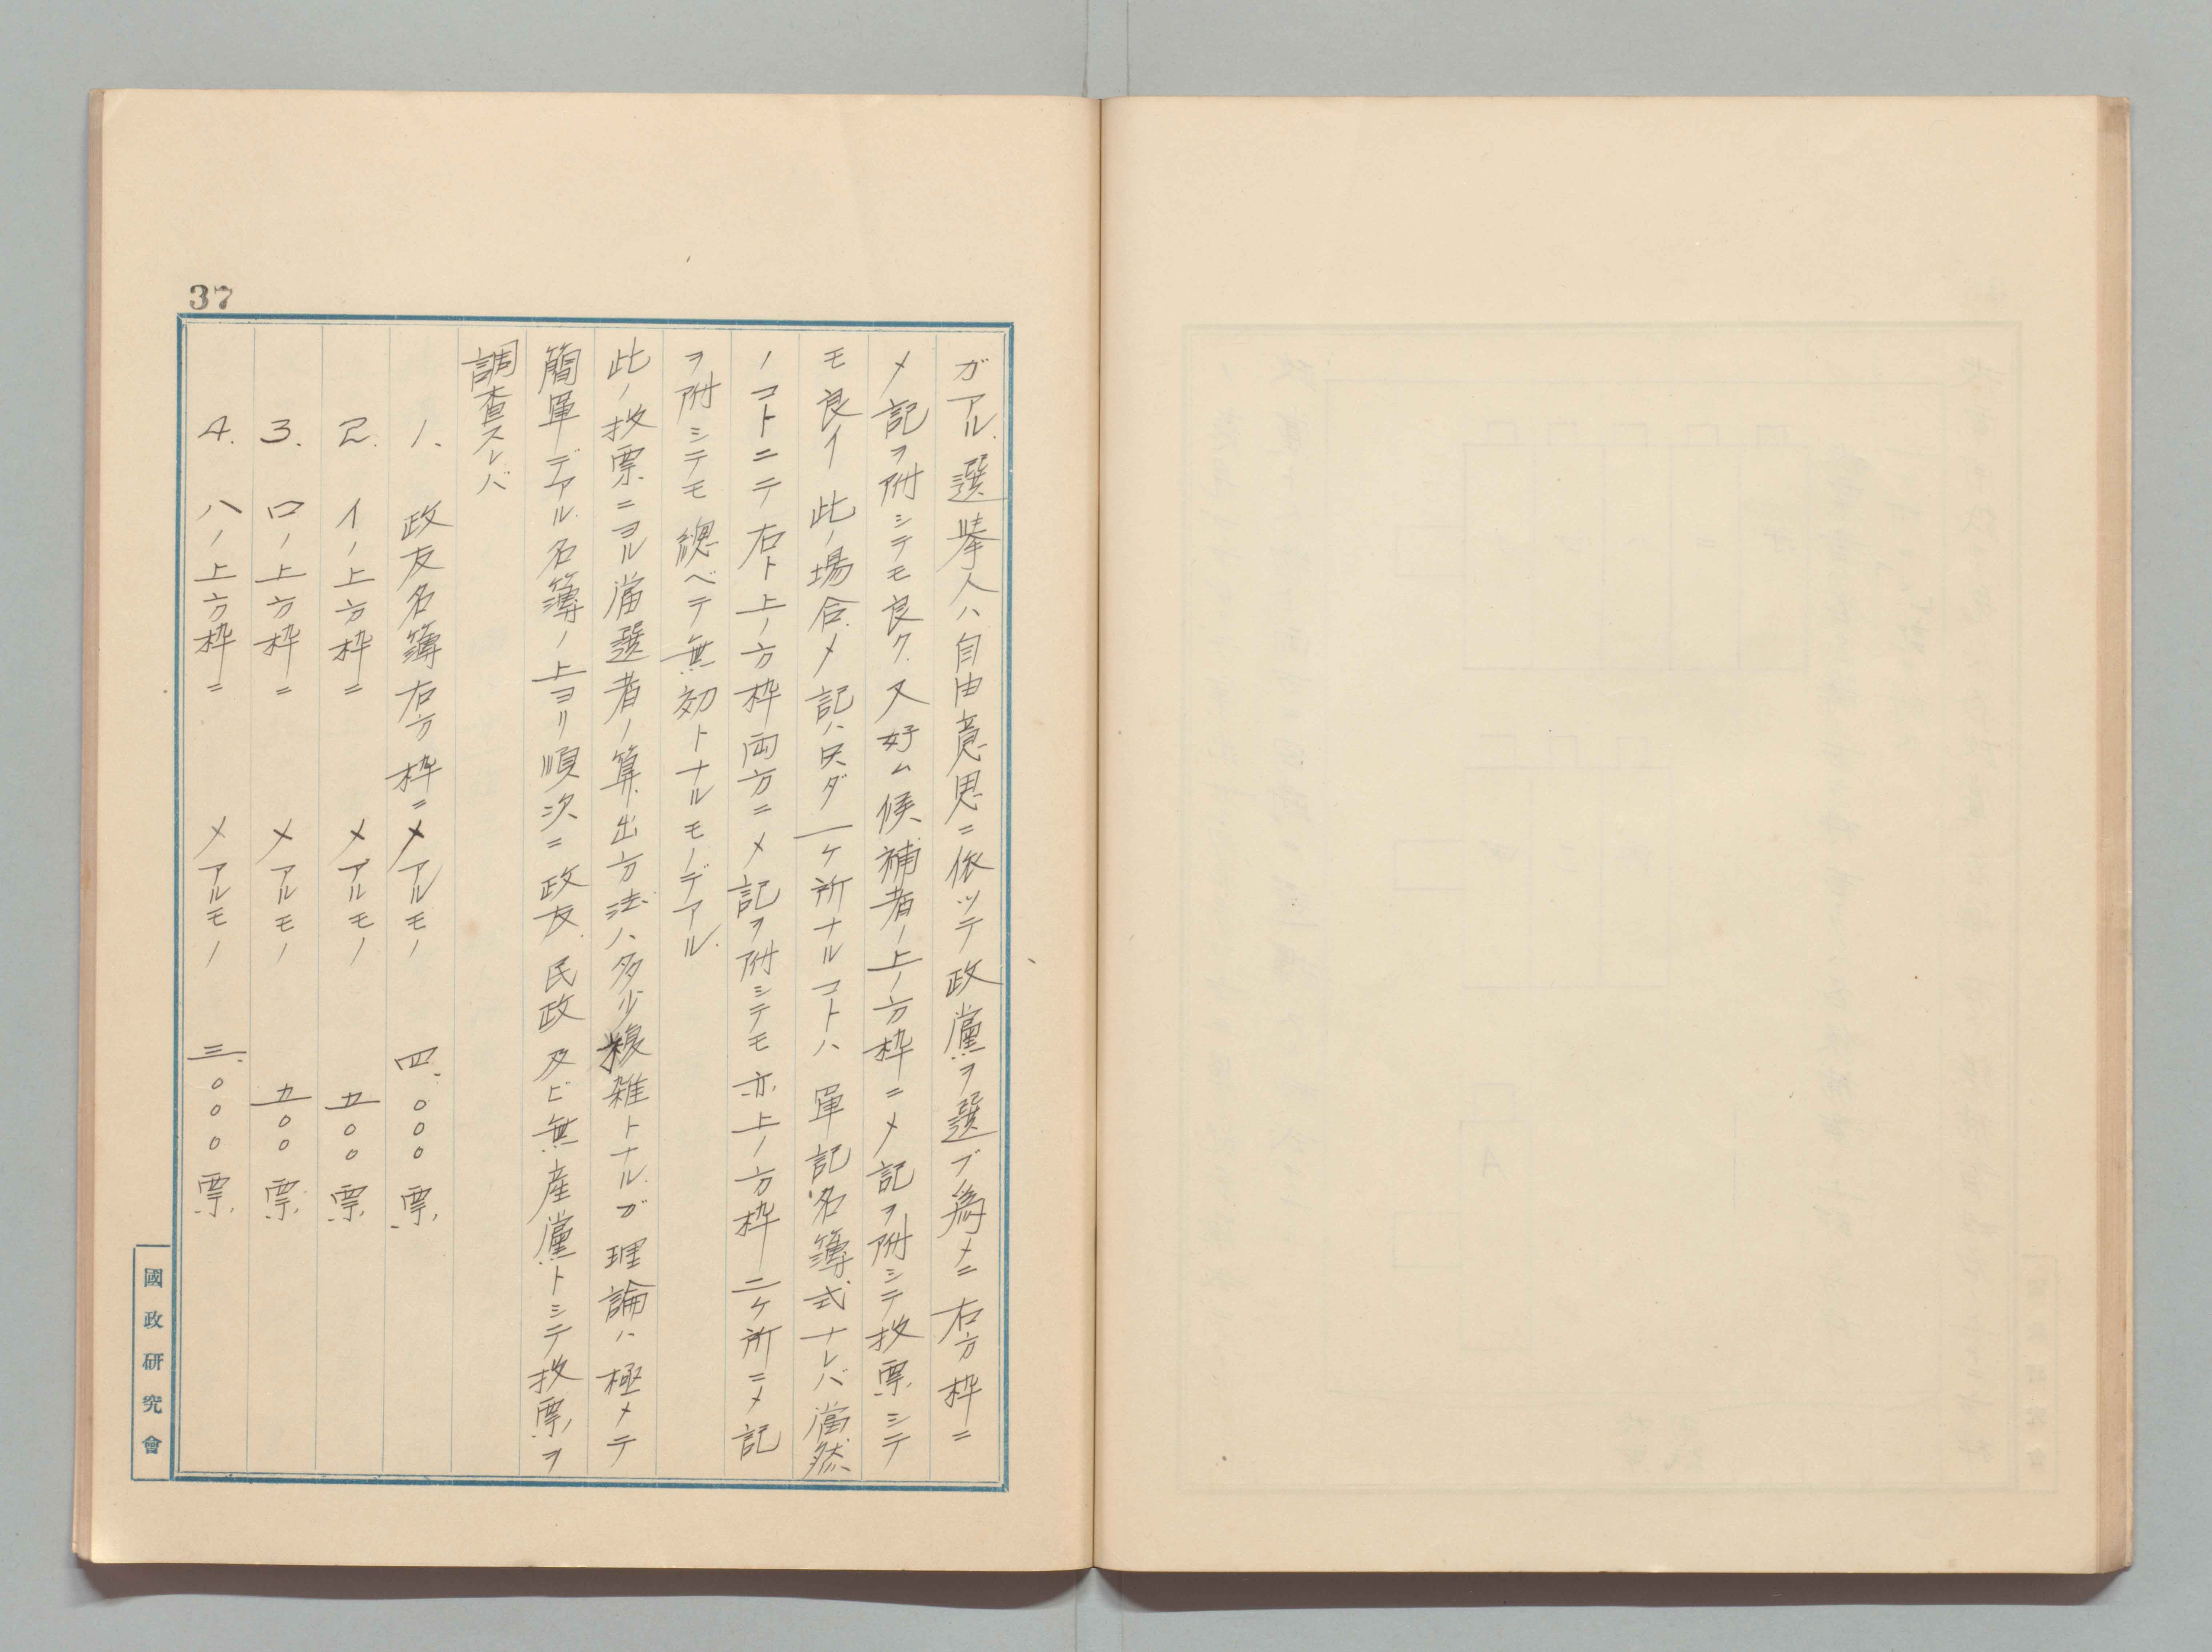 37
ガアル.選擧人ハ自由意思ニ依ッテ政黨ヲ選ブ為メニ右方枠ニ
メ記ヲ附シテモ良ク.又好ム候補者ノ上ノ方枠ニメ記ヲ附シテ投票シテ
モ良イ 此ノ場合.メ記ハ只ダ一ケ所ナルコトハ 單記名簿式ナレバ當然
ノコトニテ右ト上ノ方枠両方ニメ記ヲ附シテモ亦上ノ方枠二ケ所ニメ記
ヲ附シテモ總ベテ無効トナルモノデアル.
此ノ投票ニヨル當選者ノ算出方法ハ多少複雑トナル.ガ理論ハ極メテ
簡單デアル.名簿ノ上ヨリ順次ニ政友.民政及ビ無産黨トシテ投票ヲ
調査スレバ
1、政友名簿右方枠ニメアルモノ 四.〇〇〇票.
2.イノ上方枠ニ メアルモノ 五〇〇票.
3.ロノ上方枠ニ メアルモノ 五〇〇票.
4.ハノ上方枠ニ メアルモノ 三.〇〇〇票.
國政研究會